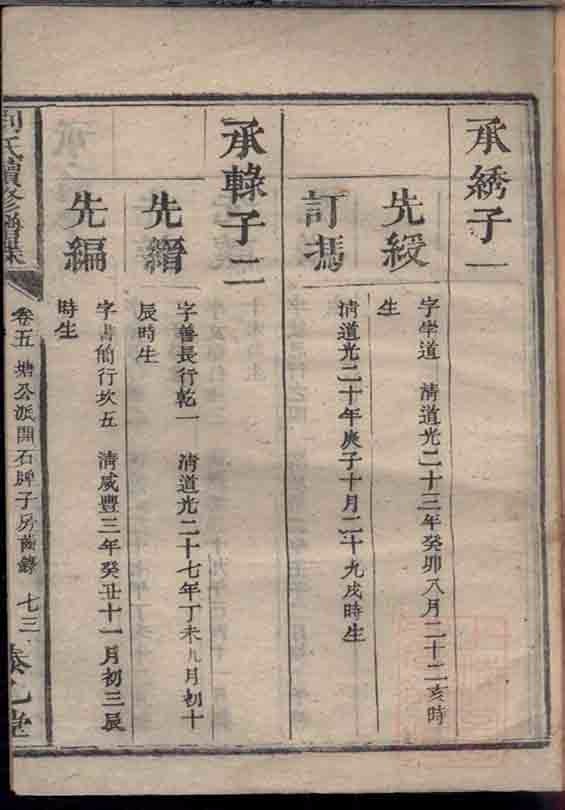 承綉子一
先綬
字學道 清道光二十三年癸卯八月二十二亥時
生
訂馮
清道光二十年庚子十月二十九戌時生
承騄子二
先縉
字善長行乾一 清道光二十七年丁未九月初十
辰時生
先編
字書簡行坎五 清咸豐三年癸丑十一月初三辰
時生
氏續修譜
卷五 塘公派開石牌子房齒錄 七三
堂